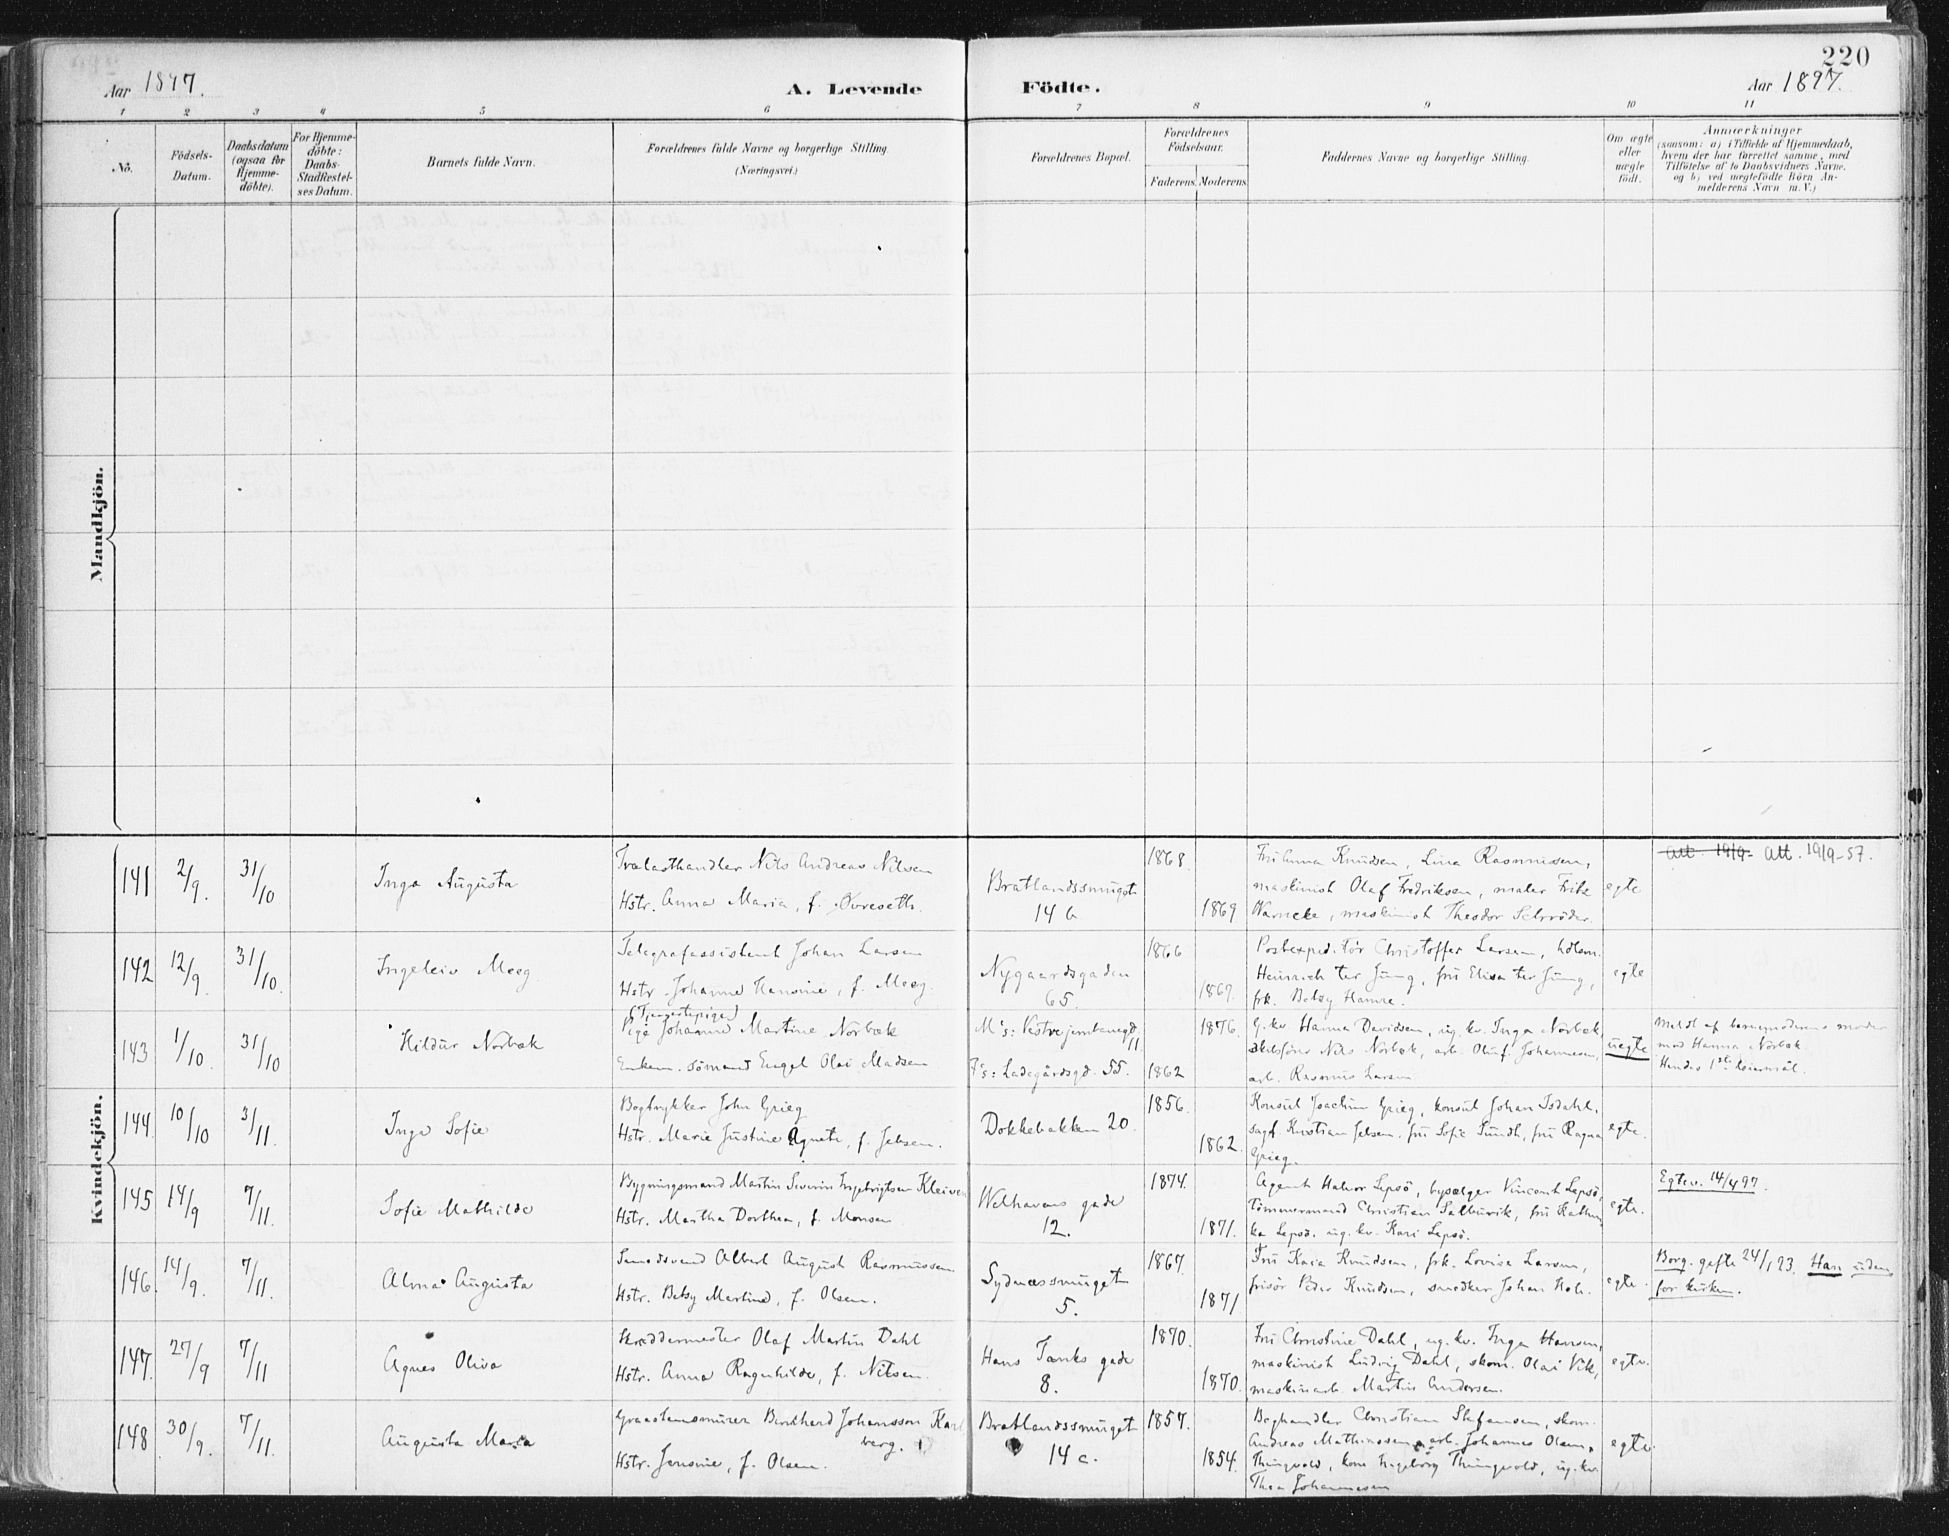 220
Aar 1897.
A. Levende
Födte.
Aar 1897.
1 2 3 4 5 6 7 8 9 10 11
No.
Födsels-
Datum.
Daabsdatum
(ogsaa for
Hjemme-
döbte).
For Hjemme-
döbte:
Daabs-
Stadfæstel-
ses Datum.
Barnets fulde Navn.
Forældrenes fulde Navne og borgerlige Stilling
(Næringsvei.)
Forældrenes Bopæl.
Forældrenes
Födselsaar.
Faderens. Moderens.
Faddernes Navne og borgerlige Stilling.
Om ægte
eller
uægte
födt.
Anmærkninger
(saasom: a) i Tilfælde af Hjemmedaab,
hvem der har forrettet samme, med
Tilföielse af to Daabsvidners Navne.
og b) ved uægtefödte Börn An-
melderens Navn m. V.)
Mandkjön.
Kvindekjön.
141
2/9.
31/10
Inga Augusta
Trælasthandler Nils Andreas Nilsen
Hstr. Anna Maria, f. Øvreseth.
Bratlandssmuget
14 b.
1868
1869
Fru Anna Knudsen, Lina Rasmussen,
maskinist Olaf Fredriksen, maler Fritz
Warncke, maskinist Theodor Schrøder.
egte
att. 19/9- att. 19/9-57.
142
12/9.
31/10.
Ingeleiv Meeg
Telegrafassistent Johan Larsen
Hstr. Johanne Hansine, f. Meeg.
Nygaardsgaden
65.
1866
1869.
Postexpeditör Christoffer Larsen,
Heinrich ter Jung, fru Elisa ter Jung,
frk. Betsy Hamre.
egte
143
1/10.
31/10
Hildur Norbæk
(Tjenestepige)
Pige Johanne Martine Norbæk
Enkem. sömand Engel Olai Madsen
M's: Vestre jernbanegd. 11
F's: Ladegårdsgd. 55.
1876.
1862
G. kv. Hanna Davidsen, ug. kv. Inga Norbæk,
Nils Norbæk, arb. Oluf Johannesen,
arb. Rasmus Larsen
uegte
Meldt af barnemoderens moder
Hanna Norbæk.
Hendes 1ste leiermål.
144.
10/10
3/11.
Inga Sofie
Bogtrykker John Grieg
Hstr. Marie Justine Agnete, f. Jebsen.
Dokkebakken 20.
1856.
1862.
Konsul Joachim Grieg, konsul Johan Isdahl,
sagf. Kristian Jebsen, fru Sofie Sundt, fru Ragna
Grieg.
egte.
145
14/9
7/11.
Sofie Mathilde
Bygningsmand Martin Severin Ingebrigtsen Kleiven
Hstr. Martha Dorthea, f. Monsen
Welhavens gade
12.
1874.
1871.
Agent Halvor Lepsö, bysælger Vincent Lepsö,
Tömmermand Christian Salbuvik, fru Kathin-
ka Lepsö. ug. kv. Kari Lepsö.
egte.
Egtev. 14/4 97.
146.
14/9.
7/11.
Alma Augusta
Smedsvend Albert August Rasmussen
Hstr. Betsy Martine, f. Olsen.
Sydnæssmuget
5.
1867.
1871
Fru Kaia Knudsen, frk. Lovise Larsen,
frisör Peder Knudsen, snedker Johan Hoh.
egte.
Borg. gifte 24/1 23. Han uden-
for kirken.
147.
27/9
7/11
Agnes Oliva
Skræddermester Olaf Martin Dahl
Hstr. Anna Ragnhilde, f. Nilsen.
Hans Tanks gade
8.
1870.
1870.
Fru Christine Dahl, ug. kv. Inga Hansen,
maskinist Ludvig Dahl, skom. Olai Vik,
maskinarb. Martin Andersen.
egte.
148
30/9.
7/11.
Augusta Maria
Graastensmurer Berthard Johansson Karl-
berg.
Hstr. Jensine, f. Olsen.
Bratlandssmuget
14 c.
1857.
1854.
Boghandler Christian Stefansen, skom.
Andreas Mathiassen, arb. Johannes Olsen,
Thingvold, kone Ingeborg Thingvold, ug. kv.
Thea Johannesen
egte.